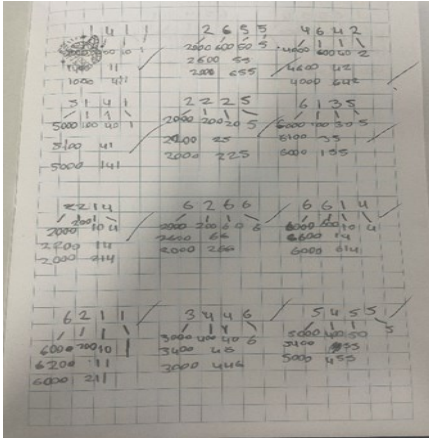 1 4 1 1
1000 411
2 6 5 5
2000 600 50 5
2600 55
2000 655
4 6 4 2
4000 600 40 2
4600 42
4000 642
5 1 4 1
5000 100 40 1
5100 41
5000 141
2 2 2 5
2000 200 20 5
2200 25
2000 225
6 1 3 5
6000 100 30 5
6100 35
6000 135
2 2 1 4
2000 200 10 4
2200 14
2000 214
6 2 6 6
2000 200 60 6
2600 66
2000 266
6 6 1 4
6000 600 10 4
6600 14
6000 614
6 2 1 1
6000 200 10 1
6200 11
6000 211
3 4 4 6
3000 400 40 6
3400 46
3000 446
5 4 5 5
5000 400 50 5
5400 55
5000 455